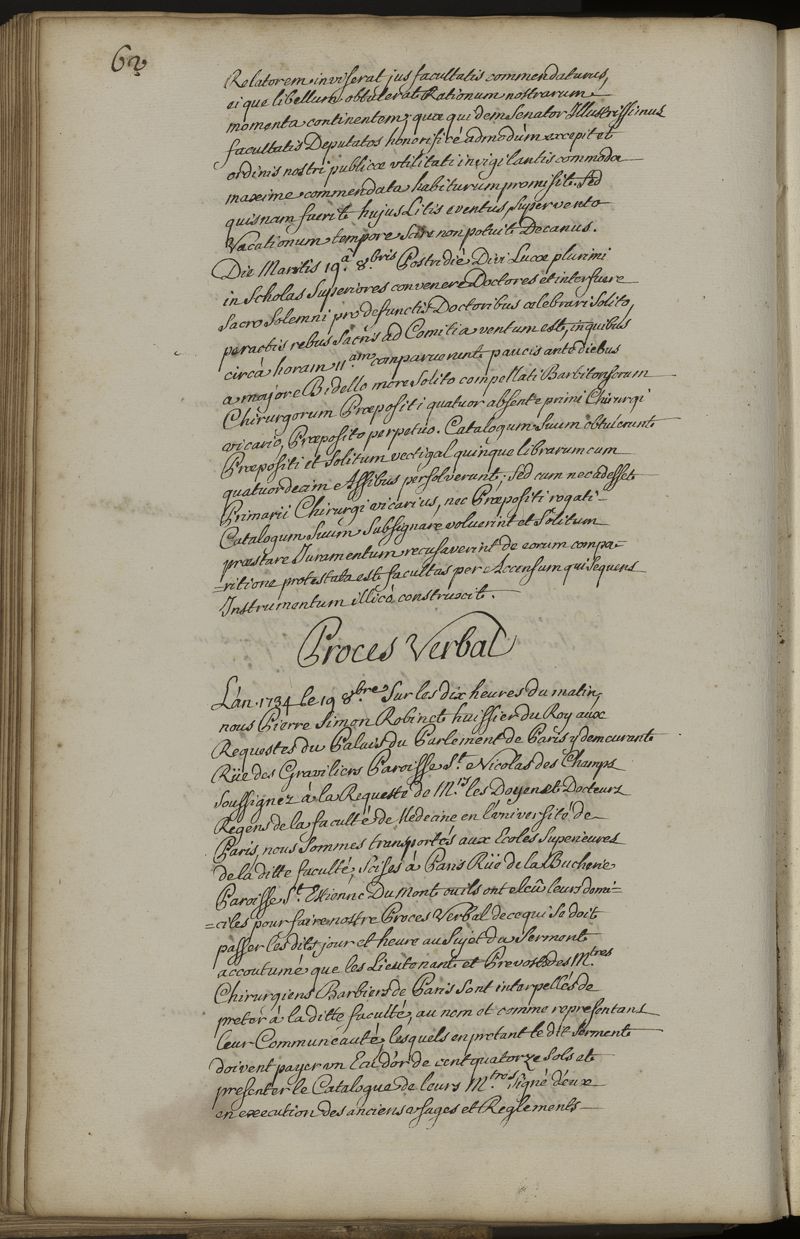 62
Relatorem inviserat jus facultatis commendaturus,
eique libellum obtulerat Rationum nostrarum
momenta continentem; quæ quidem Senator Illustrissimus
facultatis Deputatos honorificè admodùm excepit et
ordinis nostri publicæ utilitati invigilantis commoda
maxime commendata habiturum promisit. Sed
quisnam fuerit hujus Litis eventus, superventu
Vacationum tempore scire non potuit Decanus.
Die Martis 19.ª 8.bris Postridiè Divi Lucæ plurimi
in Scholas Superiores convenere Doctores et interfuere
Sacro Solemni pro defunctis Doctoribus celebrari Solito,
peractis rebus Sacris ad Comitia ventum est, inquibus
circà horam 11.am comparuerunt paucis antè diebus
a majore Bidello more Solito compellati Barbitonsorum
Chirurgorum Præpositi quatuor absente primi Chirurgi
vicario, Præposito perpetuo. Catalogum Suum obtulerunt
Præpositi et Solitum vectigal quinque librarum cum
quatuordecim Assibus persolverunt, Sed cum nec adesset
Primarii Chirurgi vicarius, nec Præpositi rogati
Catalogum Suum Subsignare voluerint et Solitum
præstare Juramentum recusaverint de eorum compa=
=ritione protestata est facultas per Accensum qui Sequens
Instrumentum illicò construxit.
Proces Verbal
L'an 1734 le 19 8.bre Sur les dix heures du matin,
nous Pierre Simon Robinet huissier du Roy aux
Requestes du Palais du Parlement de Paris y demeurant
Rüe des Graviliers Paroisse S.t Nicolas des Champs
Soussignez à la Requeste de M.rs les Doyen et Docteurs
Regens de la faculté de Medecine en l'université de
Paris, nous Sommes transportés aux Ecoles Superieures
de la ditte faculté, Scises à Paris Rüe de la Bucherie
Paroisse S.t Estienne Du Mont ou ils ont elcû leurs domi=
=ciles pour faire nostre Proces Verbal de ce qui Se doit
passer lesdits jour et heure au Sujet du Serment
accoutumé que les Lieutenant et Prevosts des M.tres
Chirurgiens Barbiers de Paris Sont interpellés de
preter à la ditte faculté, au nom et comme representans
leur Communeauté, lesquels en pretant le dit Serment
doivent payer un Ecu d'or de cent quatorze Sols et
presenter le Catalogue de leurs M.tres Signé d'eux
en execution des anciens usages et Reglements